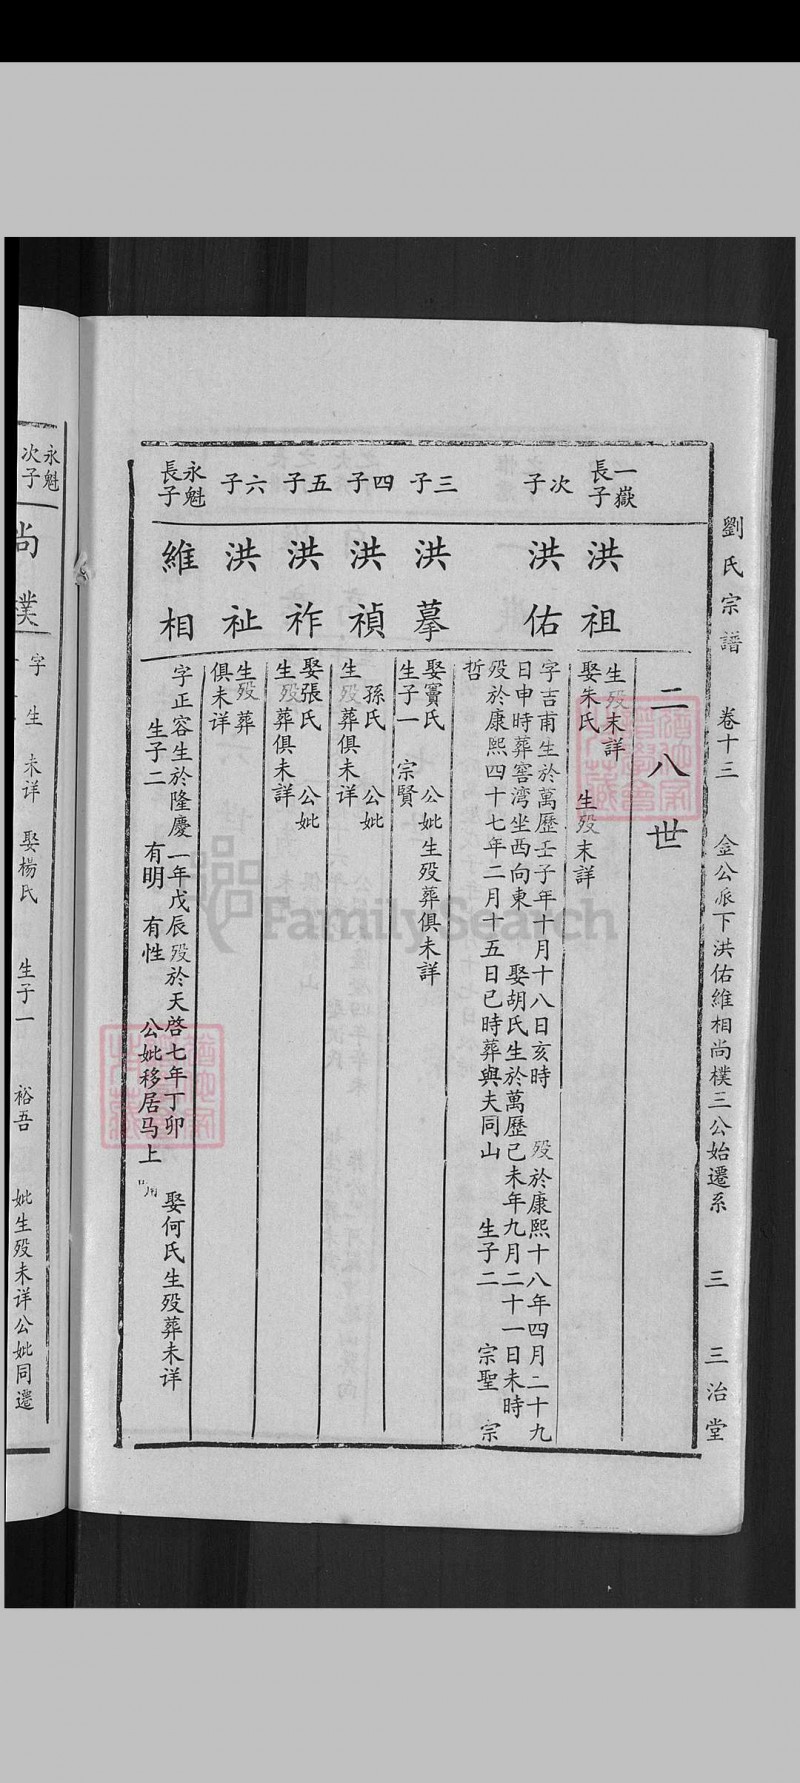 劉氏宗譜 卷十三 金公派下洪佑維相尚樸三公始遷系 三 三治堂
二八世
一嶽
長子
洪祖
生殁未詳
娶朱氏 生殁未詳
次子
洪佑
字吉甫生於萬歷壬子年十月十八日亥時 殁於康熙十八年四月二十九
日申時葬窖湾坐西向東 娶胡氏生於萬歷己未年九月二十一日未時
殁於康熙四十七年二月十五日巳時葬與夫同山 生子二 宗聖 宗
哲
三子
洪摹
娶竇氏 公妣生殁葬俱未詳
生子一 宗賢
四子
洪禎
孫氏 公妣
生殁葬俱未详
五子
洪祚
娶張氏 公妣
生殁葬俱未詳
六子
洪祉
生殁葬
俱未详
永魁
長子
維相
字正容生於隆慶二年戊辰殁於天啓七年丁卯 娶何氏生殁葬未详
生子二 有明 有性 公妣移居马上
永魁
次子
尚樸
字 生 未详 娶楊氏 生子一 裕吾 妣生殁未详公妣同遷
FamilySearch